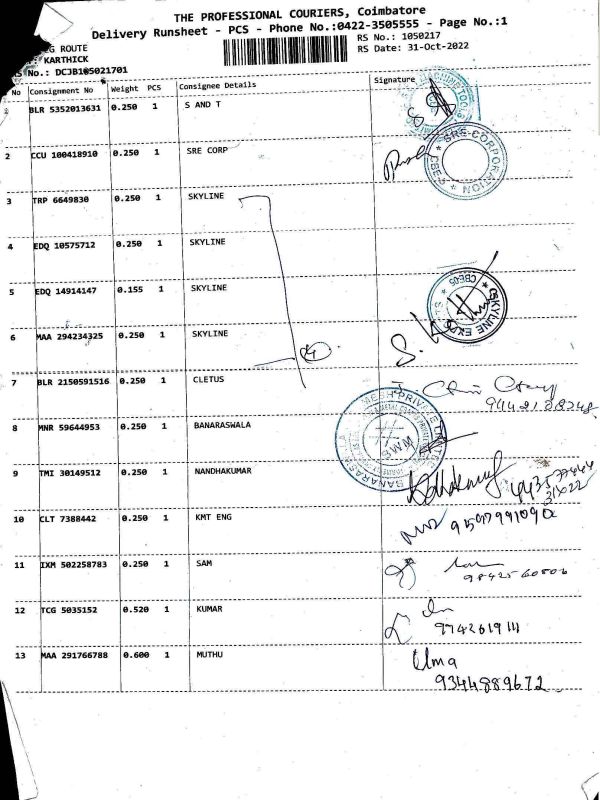 THE PROFESSIONAL COURIERS, Coimbatore
Delivery Runsheet - PCS - Phone No.:0422-3505555 - Page No.:1
G ROUTE
RS No.: 1050217
KARTHICK
RS Date: 31-Oct-2022
No.: DCJB105021701
No Consignment No Weight PCS Consignee Details Signature
BLR 5352013631 0.250 1 S AND T
2 CCU 100418910 0.250 1 SRE CORP
SRE-CORPORATION
CBE-5
3 TRP 6649830 0.250 1 SKYLINE
4 EDQ 10575712 0.250 1 SKYLINE
5 EDQ 14914147 0.155 1 SKYLINE
6 MAA 294234325 0.250 1 SKYLINE
4
7 BLR 2150591516 0.250 1 CLETUS
8 MNR 59644953 0.250 1 BANARASWALA
BWM
9 TMI 30149512 0.250 1 NANDHAKUMAR
10 CLT 7388442 0.250 1 KMT ENG
11 IXM 502258783 0.250 1 SAM
12 TCG 5035152 0.520 1 KUMAR
13 MAA 291766788 0.600 1 MUTHU
Uma
9344889672